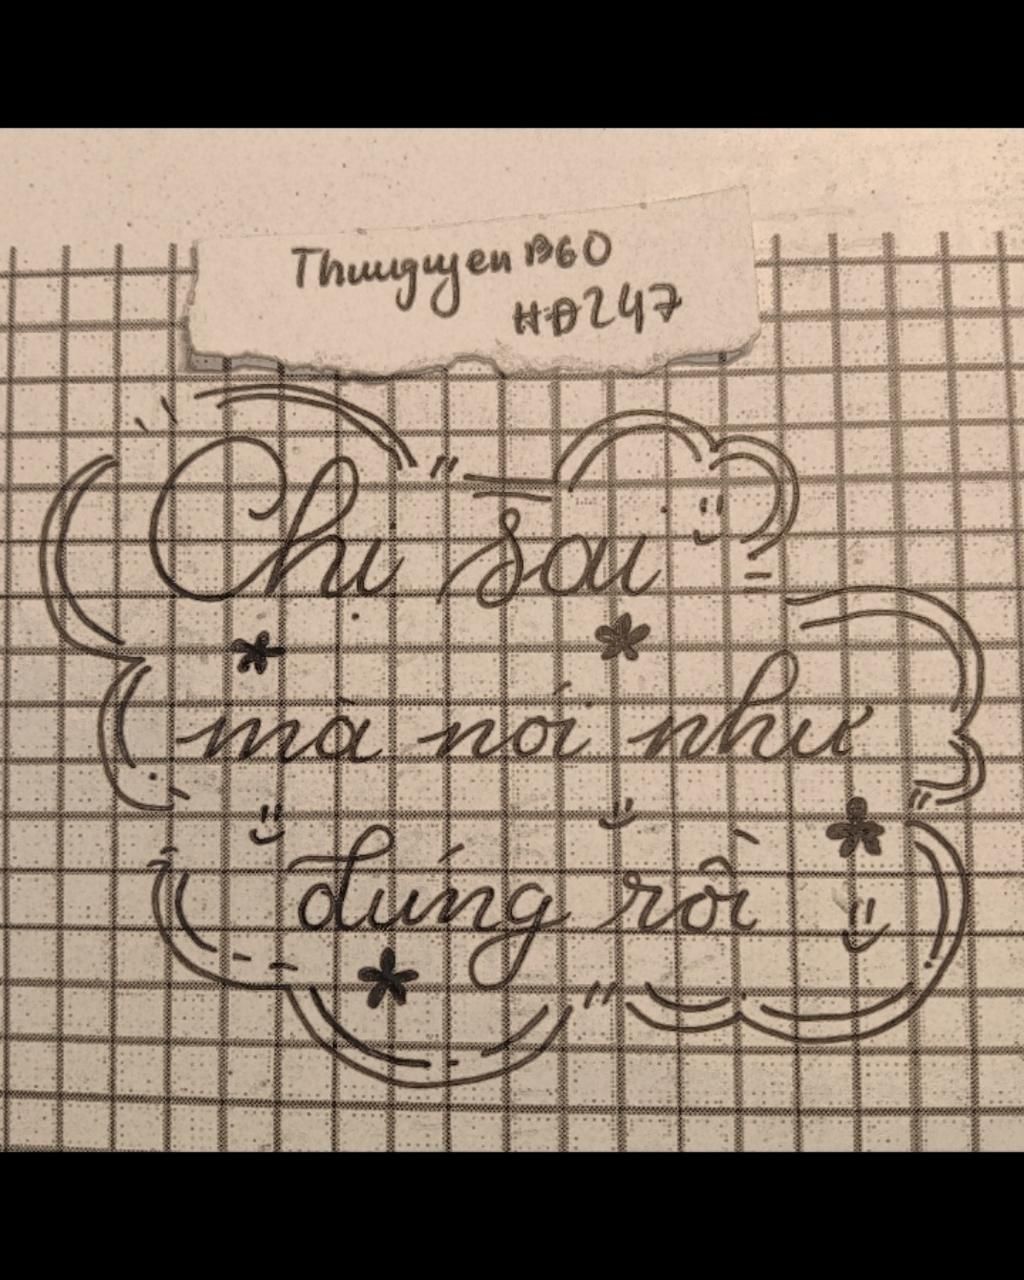 Thuuguyen B60
HĐ247
Chị sai
mà nói như
đúng rồi